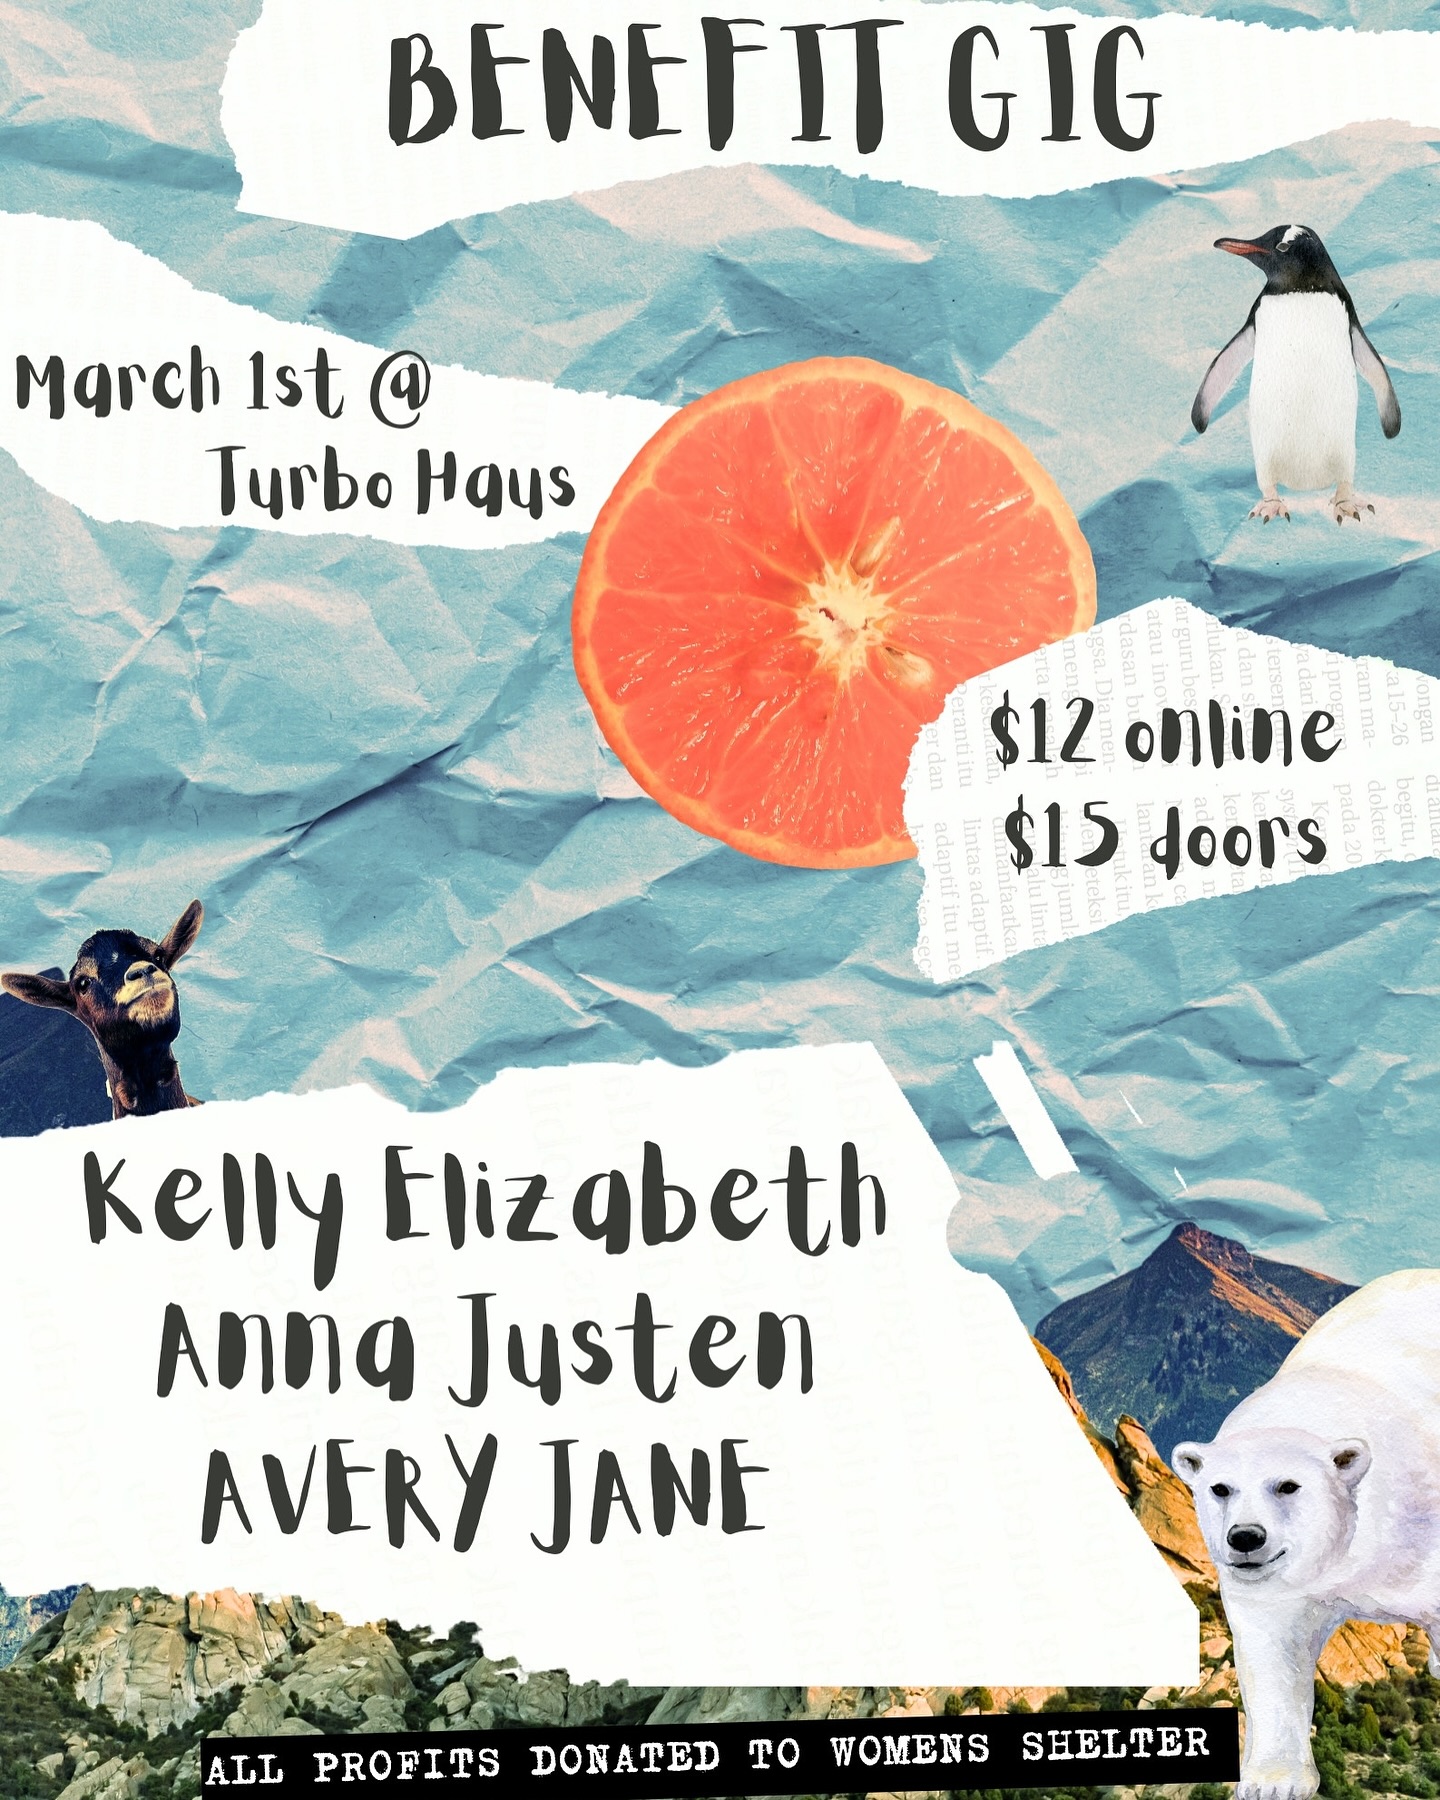 BENEFIT GIG
March 1st @
Turbo Haus
$12 online
$15 doors
Kelly Elizabeth
Anna Justen
AVERY JANE
ALL PROFITS DONATED TO WOMENS SHELTER